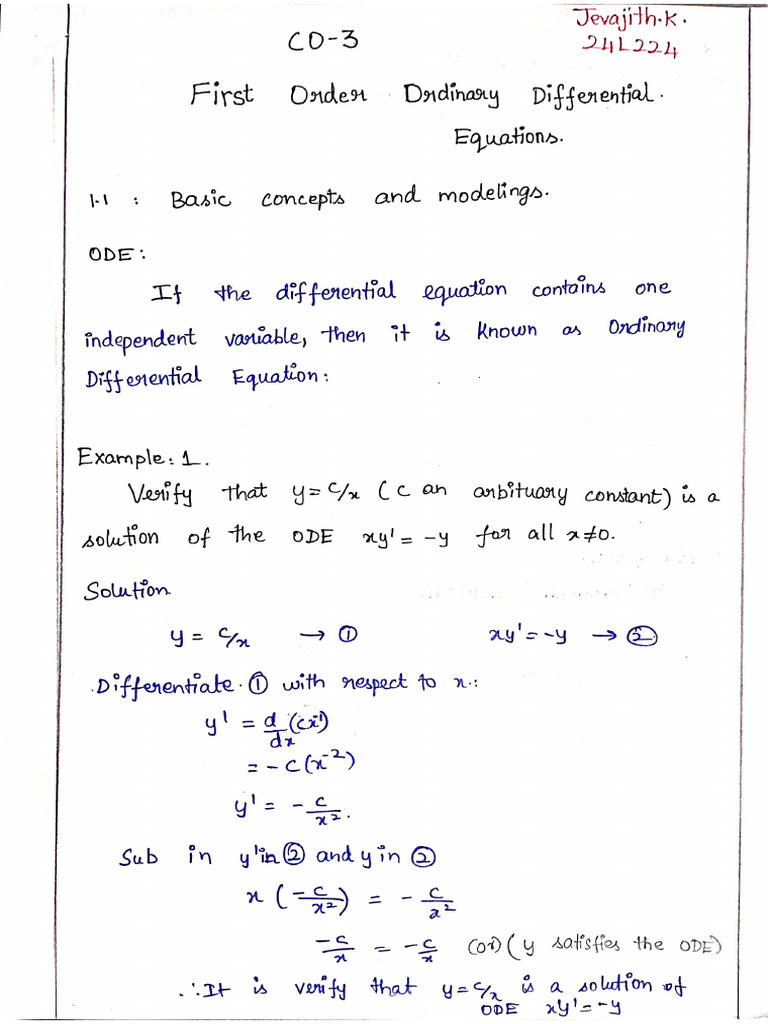 Jevajith.K.
24L224
CO-3
First Order Ordinary Differential.
Equations.
1.1 : Basic concepts and modelings.
ODE:
If the differential equation contains one
independent variable, then it is known as Ordinary
Differential Equation:
Example: 1.
Verify that y = c/x (c an arbituary constant) is a
solution of the ODE xy' = -y for all x≠0.
Solution
y = c/x → ① xy' = -y → ②
Differentiate ① with respect to x.:
y' = d/dx (cx⁻¹)
= -c(x⁻²)
y' = - c/x².
Sub in y' in ② and y in ②
x (-c/x²) = - c/x²
-c/x = -c/x (or) (y satisfies the ODE)
∴ It is verify that y = c/x is a solution of
ODE xy' = -y